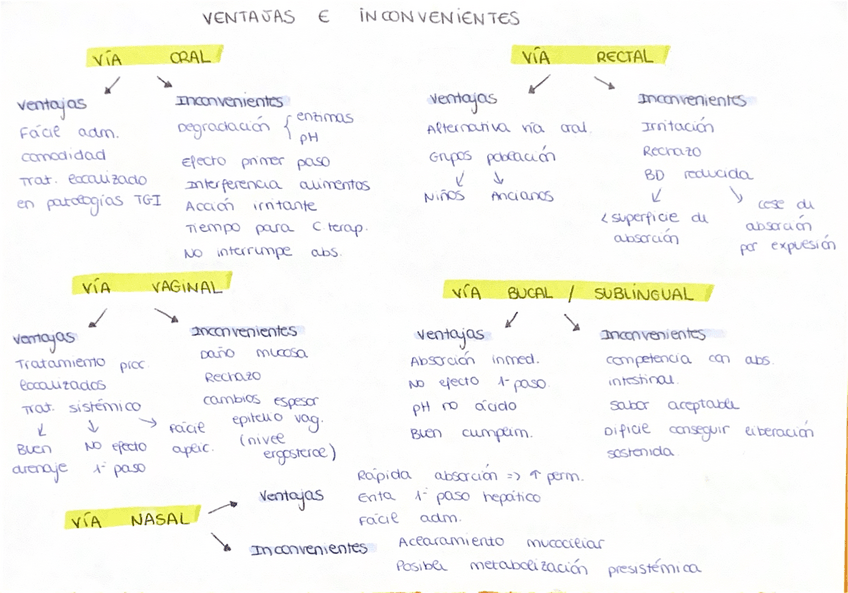 VENTAJAS E INCONVENIENTES
VÍA ORAL
Ventajas
Fácil adm.
comodidad
Trat. localizado
en patologías TGI
Inconvenientes
Degradación { enzimas
pH
Efecto primer paso
Interferencia alimentos
Acción irritante
Tiempo para C terap.
No interrumpe abs.
VÍA RECTAL
Ventajas
Alternativa vía oral.
Grupos población
Niños Ancianos
Inconvenientes
Irritación
Rechazo
BD reducida
< superficie de
absorción
cese de
absorción
por expulsión
VÍA VAGINAL
Ventajas
Tratamiento proc.
localizados
Trat. sistémico
Buen
drenaje
No efecto
1er paso
Fácil
aplic.
Inconvenientes
Daño mucosa
Rechazo
cambios espesor
epitelio vag.
(nivel
ergosterol)
VÍA BUCAL / SUBLINGUAL
Ventajas
Absorción inmed.
No efecto 1er paso
pH no ácido
Buen cumplim.
Inconvenientes
competencia con abs.
intestinal.
Sabor aceptable
Difícil conseguir liberación
sostenida
VÍA NASAL
Ventajas
Rápida absorción => ↑ perm.
Evita 1er paso hepático
Fácil adm.
Inconvenientes
Aclaramiento mucociliar
Posible metabolización presistémica